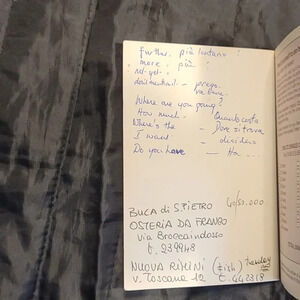 further. più lontano
more. più
not yet.
don't mention it - prego.
va bene.
Where are you going?
How much. Quanto costa
Where's the - Dove si trova
I want - desidero
Do you have - Ha ...
40/50.000
BUCA di S. PIETRO
OSTERIA DA FRANCO
via Broccaindosso
t. 239948
NUOVA RIMINI (fish)
v. Toscana 12 t. 442318